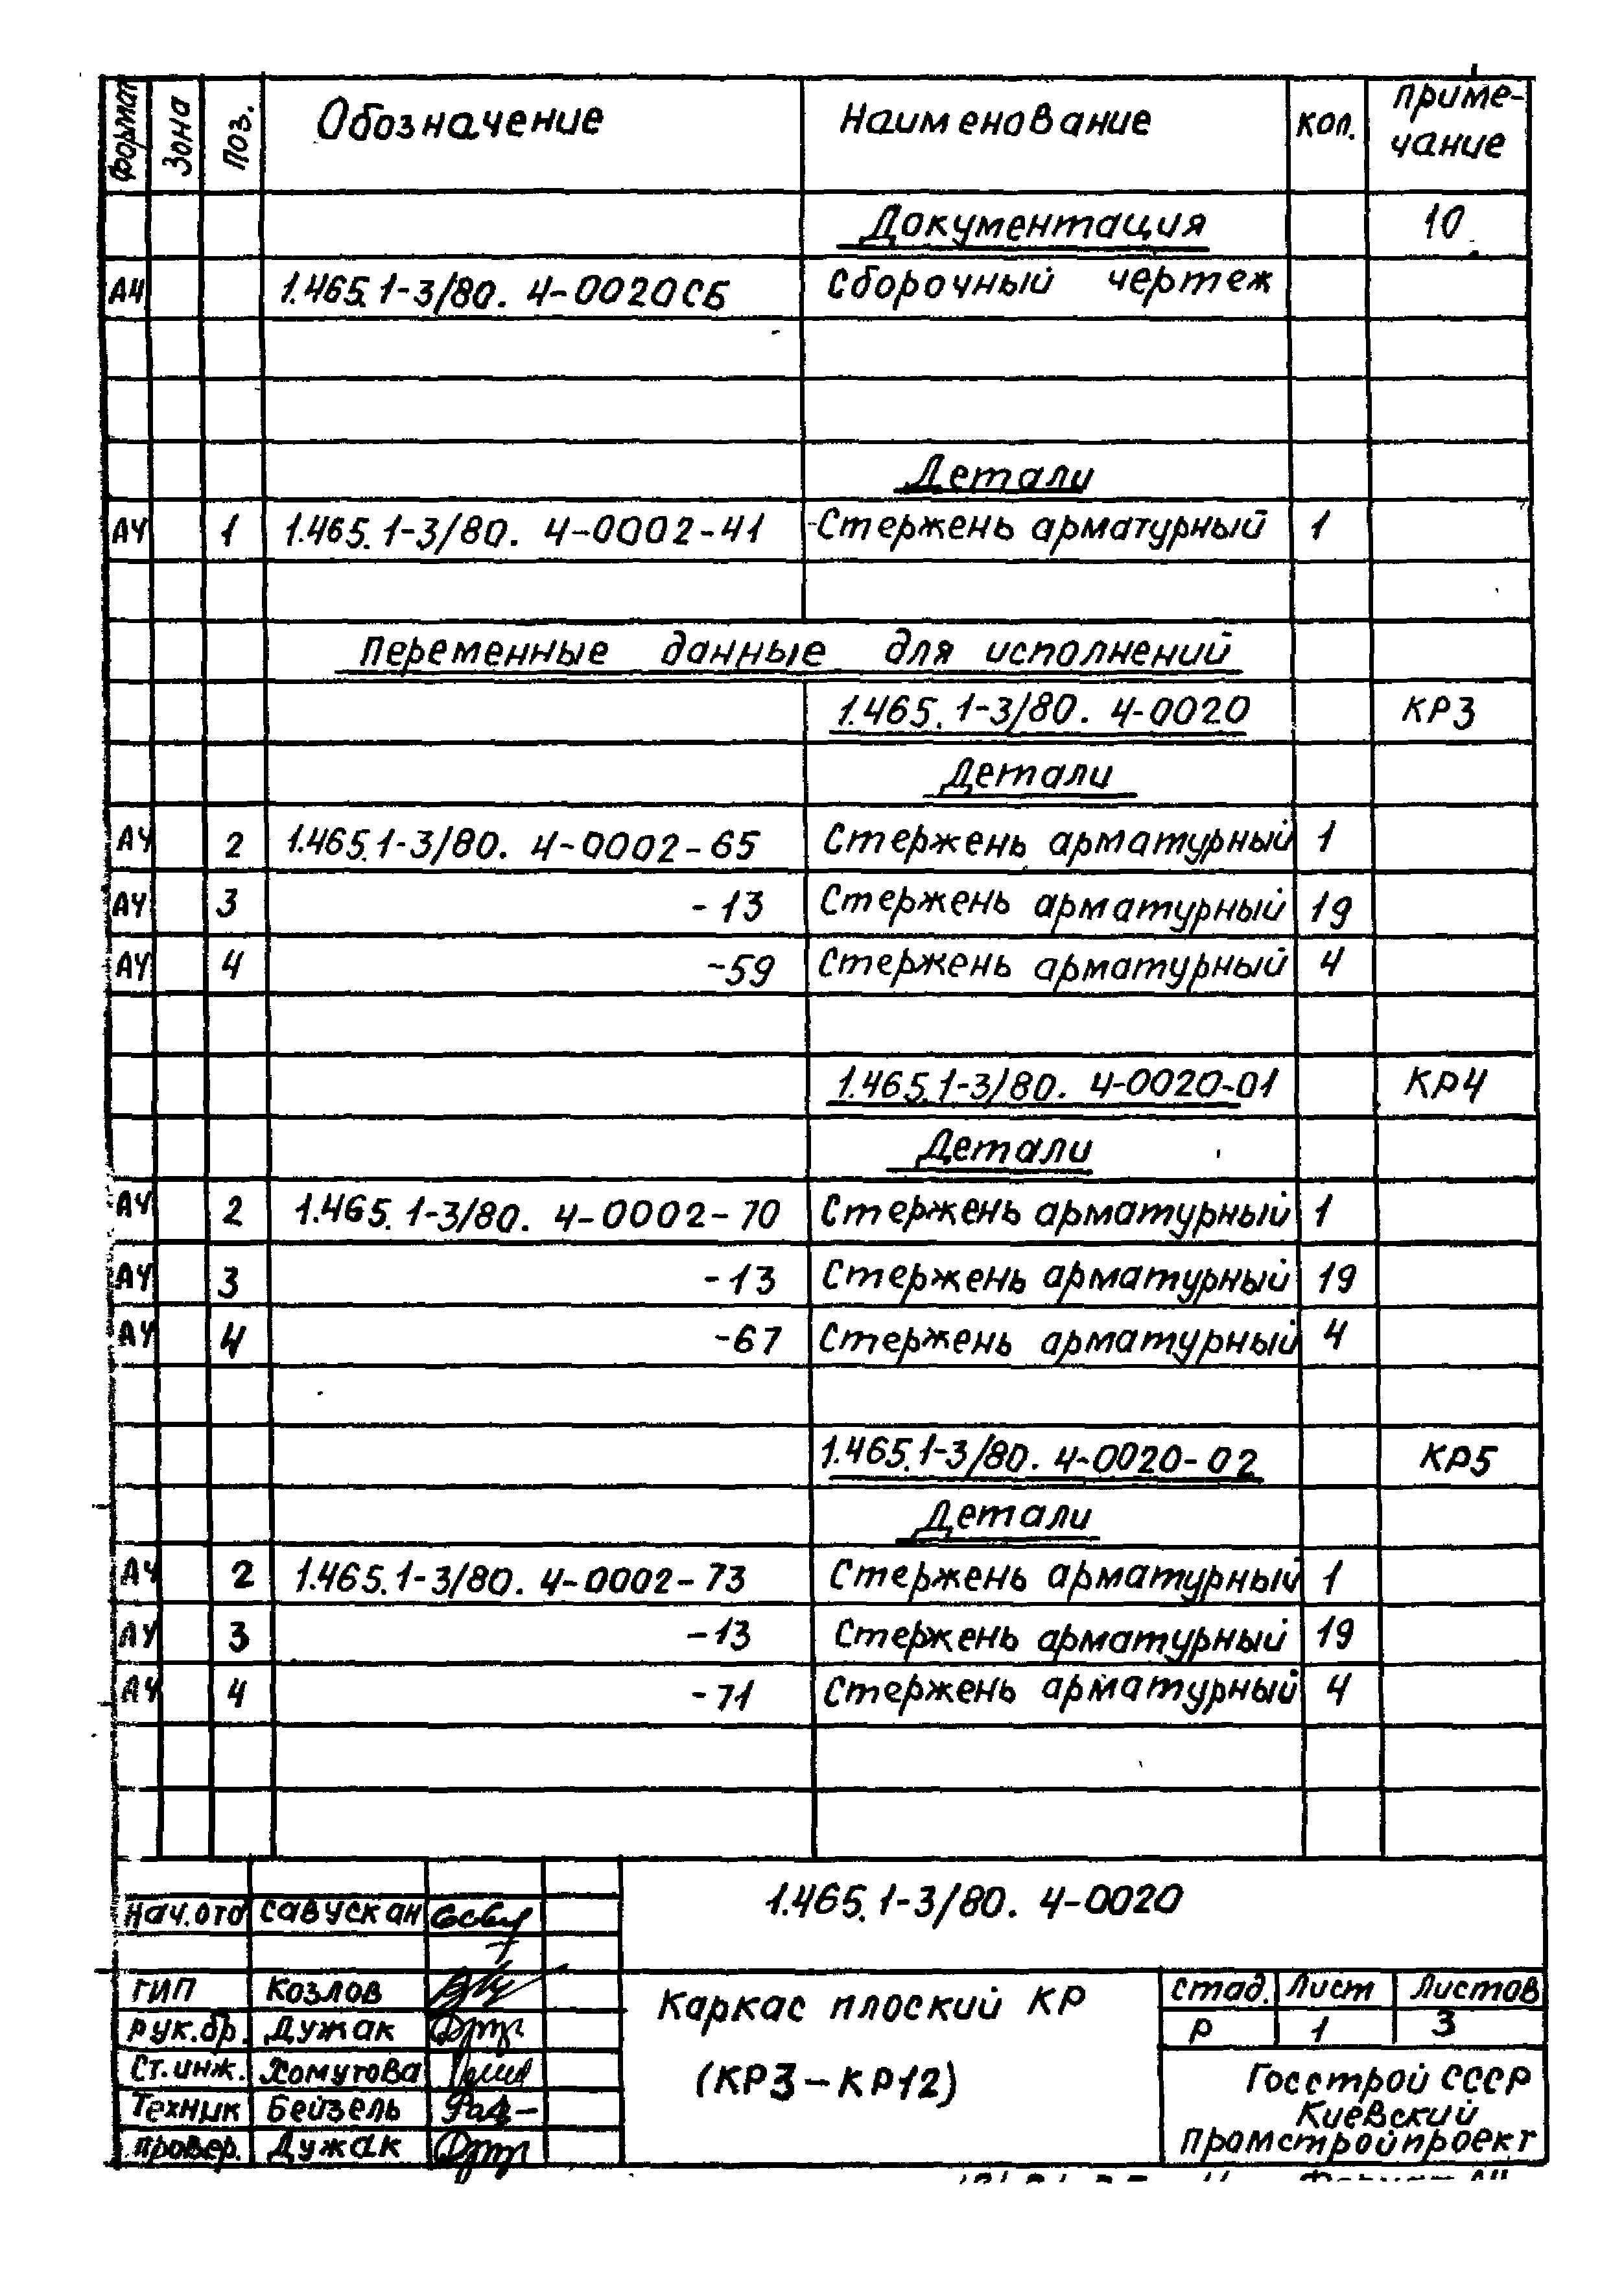 Формат Зона Поз. Обозначение Наименование кол. приме-
чание
Документация 10
А4 1.465.1-3/80. 4-0020СБ Сборочный чертеж
Детали
А4 1 1.465.1-3/80. 4-0002-41 Стержень арматурный 1
Переменные данные для исполнений
1.465.1-3/80. 4-0020 КР3
Детали
А4 2 1.465.1-3/80. 4-0002-65 Стержень арматурный 1
А4 3 -13 Стержень арматурный 19
А4 4 -59 Стержень арматурный 4
1.465.1-3/80. 4-0020-01 КР4
Детали
А4 2 1.465.1-3/80. 4-0002-70 Стержень арматурный 1
А4 3 -13 Стержень арматурный 19
А4 4 -67 Стержень арматурный 4
1.465.1-3/80. 4-0020-02 КР5
Детали
А4 2 1.465.1-3/80. 4-0002-73 Стержень арматурный 1
А4 3 -13 Стержень арматурный 19
А4 4 -71 Стержень арматурный 4
1.465.1-3/80. 4-0020
Нач.отд Савускан
ГИП Козлов
рук.бр. Дужак
Ст.инж. Хомутова
Техник Бейзель
провер. Дужак
Каркас плоский КР
(КР3-КР12)
стад. Лист Листов
Р 1 3
Госстрой СССР
Киевский
Промстройпроект